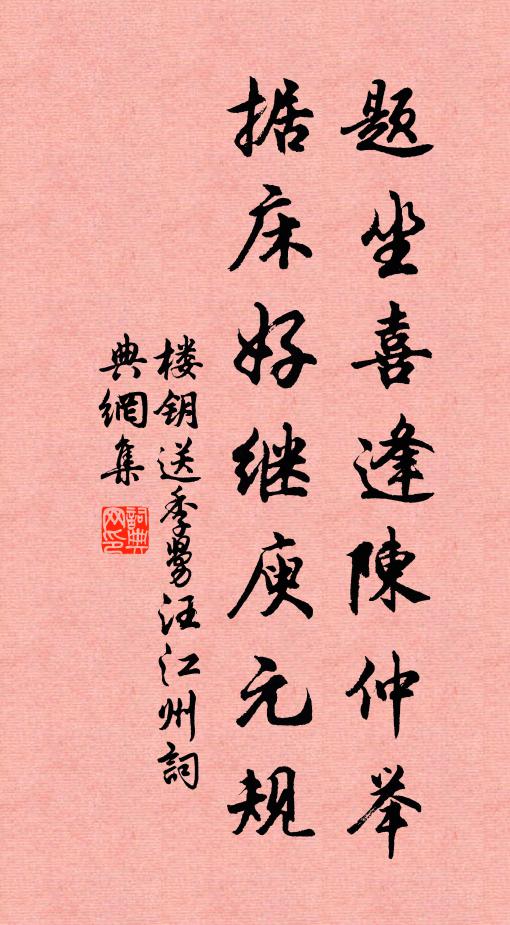 题坐喜逢陳仲举
据床好继庾元规
楼钥送季舅汪江州詞
典網集
詞典网印